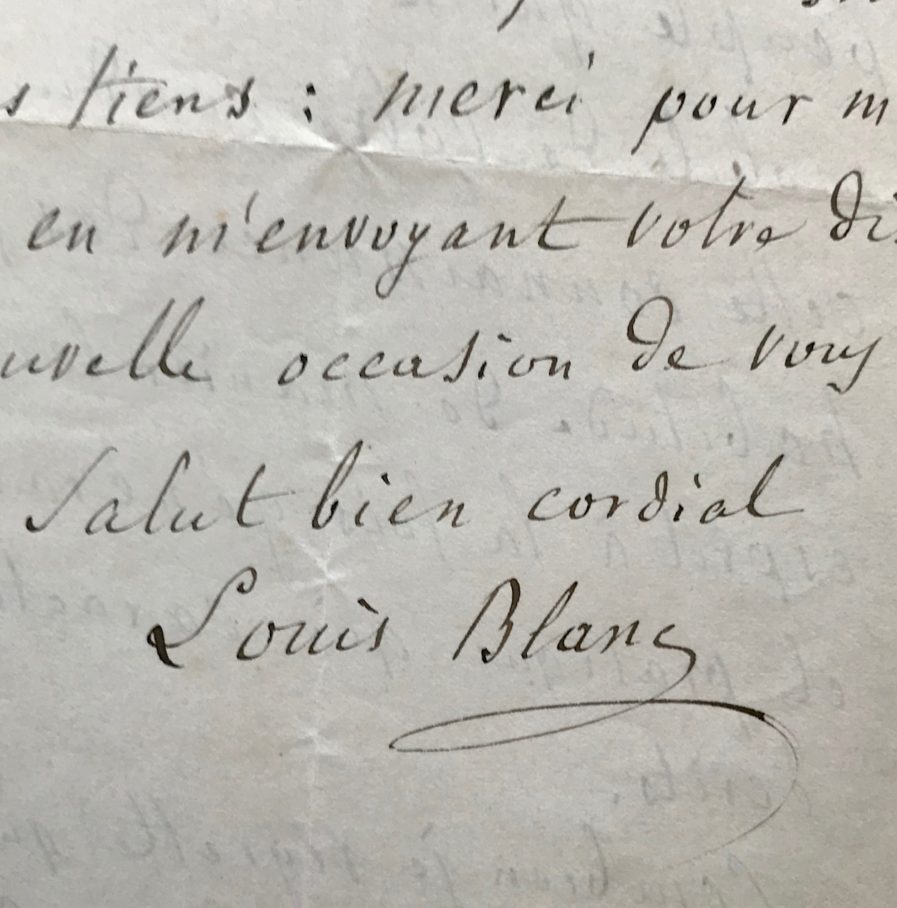 tiens : merci pour m
en m'envoyant votre di
uvelle occasion de vous
Salut bien cordial
Louis Blanc